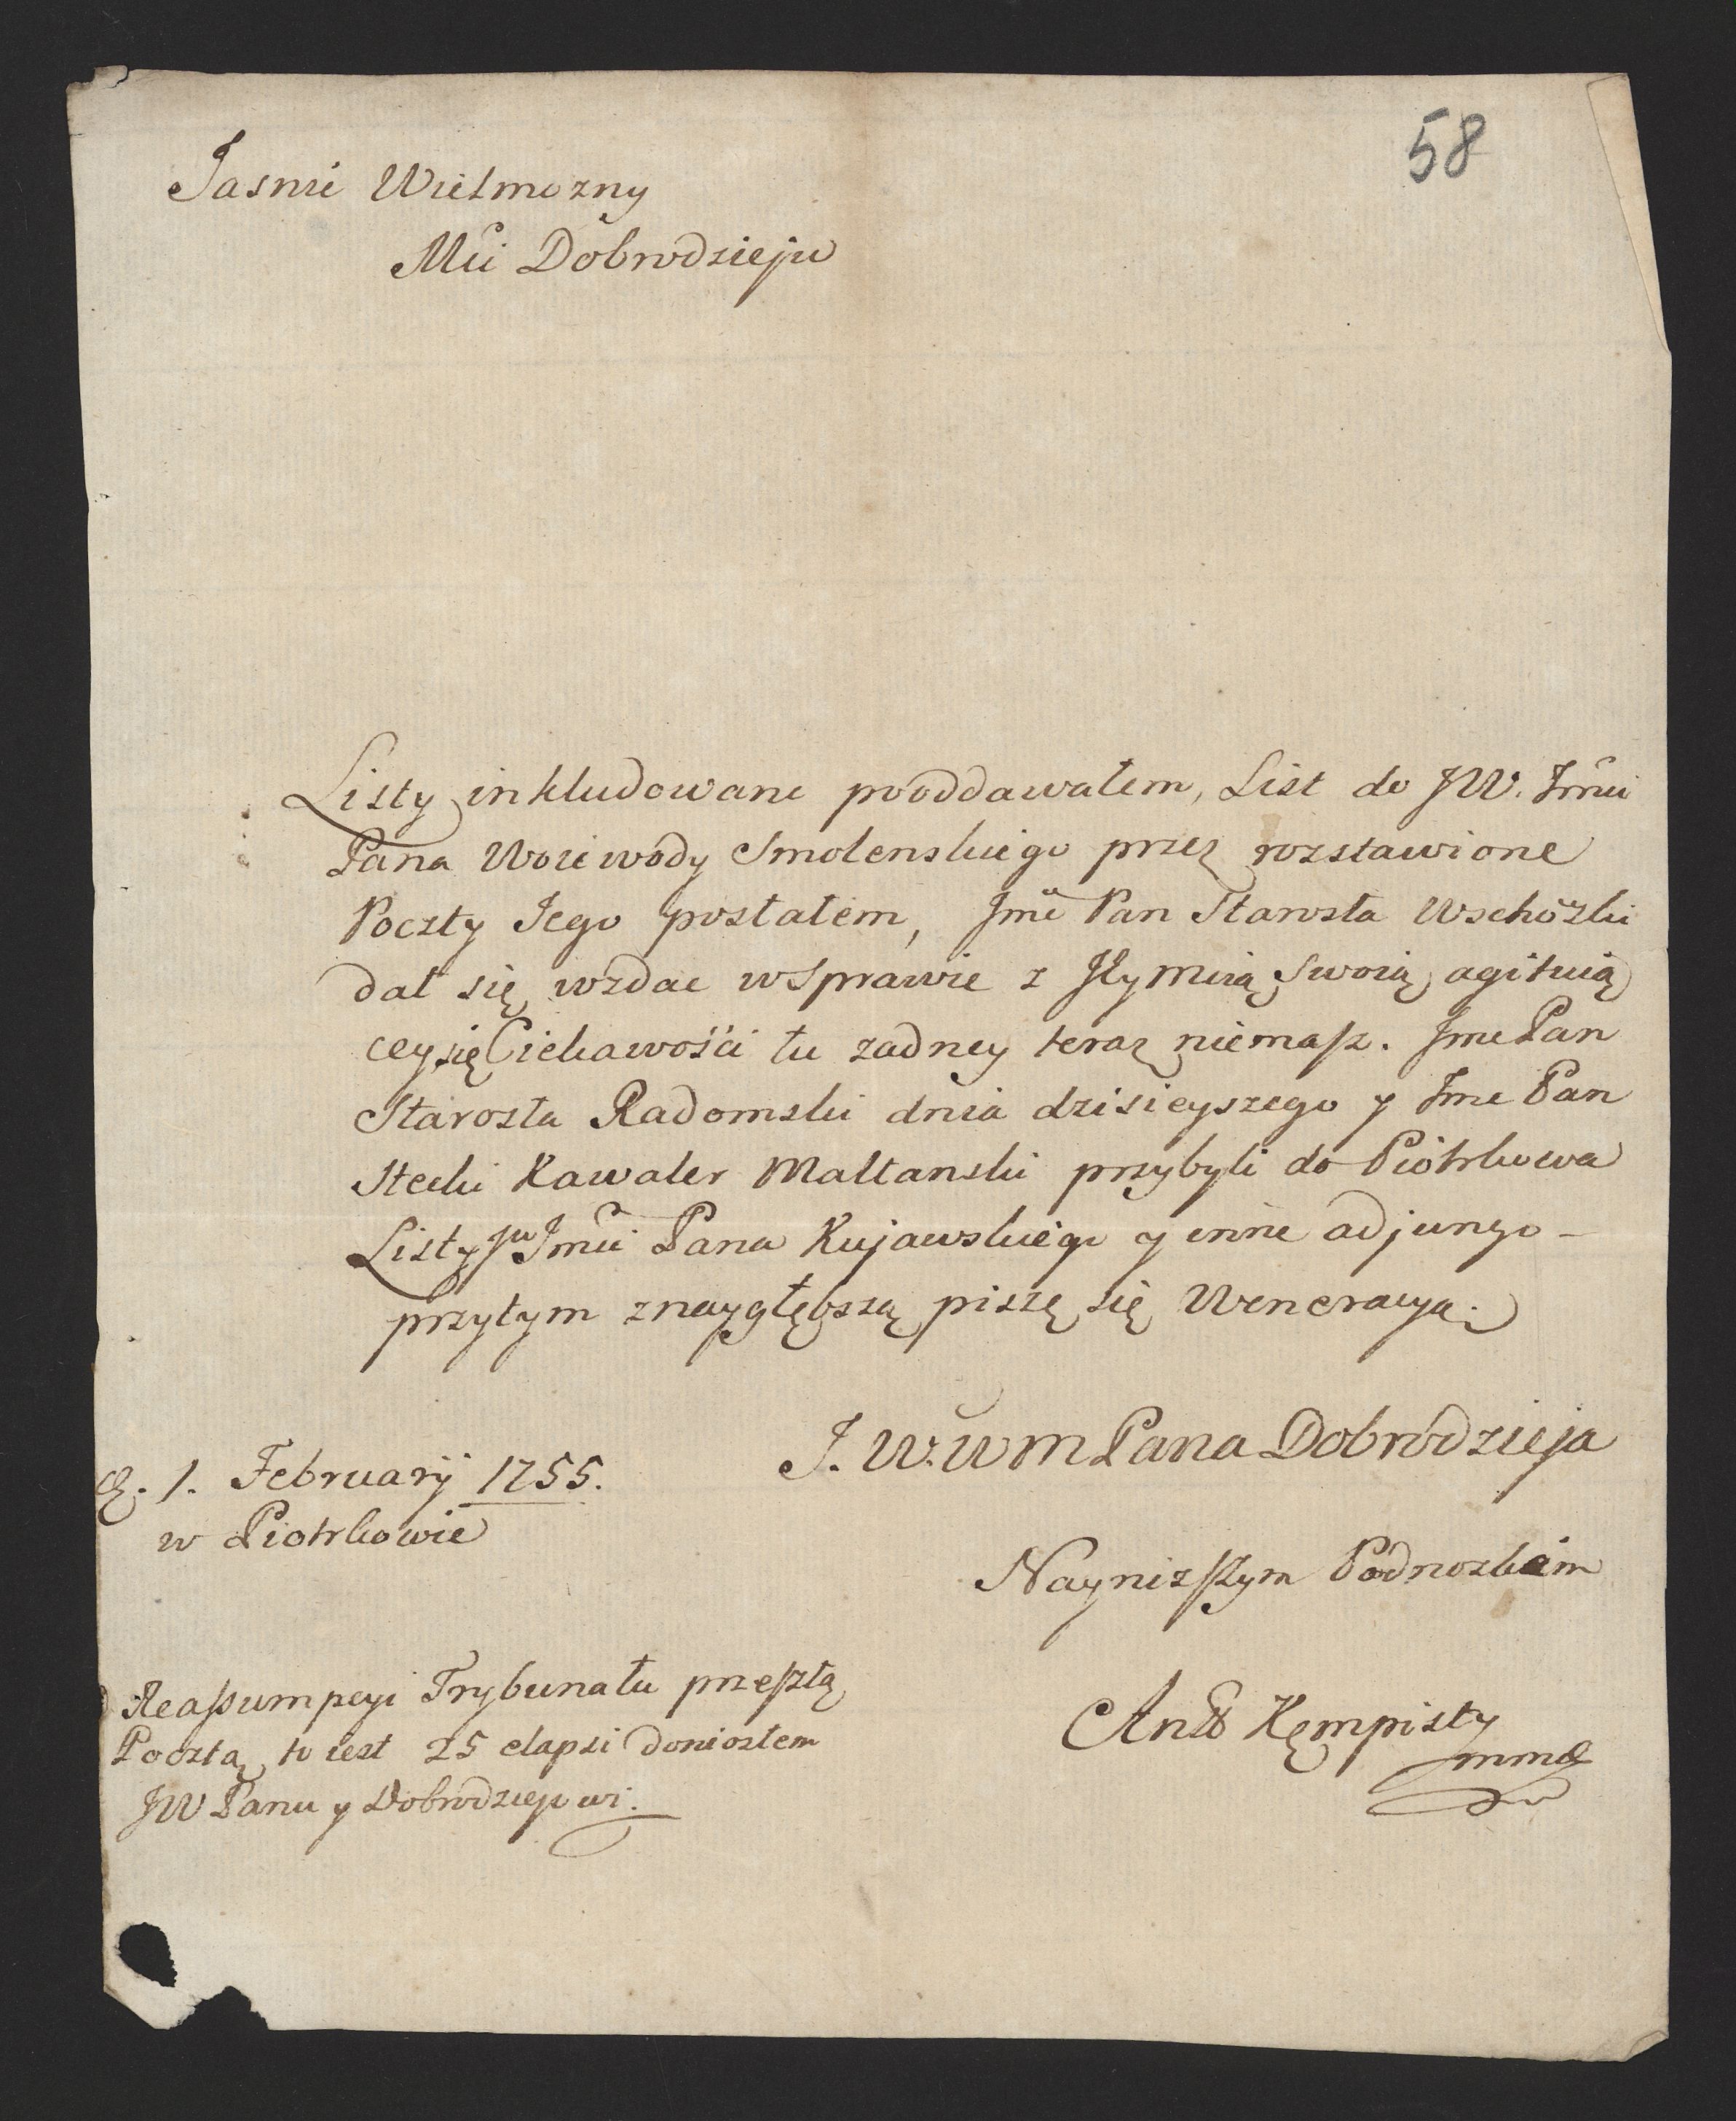 58
Jasnie Wielmozny
Mci Dobrodzieju
Listy inkludowane pooddawałem, List do JW. Jmci
Pana Woiewody Smolenskiego przez rozstawione
Poczty Jego posłałem, Jmć Pan Starosta Wschowski
dał się wzdac w Sprawie z Jeymcią Swoią agituią
cey się Ciekawości tu zadney teraz niemasz. Jmc Pan
Starosta Radomski dnia dzisieyszego y Jmc Pan
Stecki Kawaler Maltanski przybyli do Piotrkowa
Listy Jmci Pana Kujawskiego y inne adjungo –
przytym z naygłębszą piszę się Weneracyą.
J. W. W M Pana Dobrodzieja
d. 1. Februarij 1755.
w Piotrkowie
Nayniższym Podnozkiem
O Reassumpcyi Trybunału przeszłą
Pocztą to iest 25 elapsi doniosłem
JW Panu y Dobrodziejowi.
Ant Kęmpisty
mmp